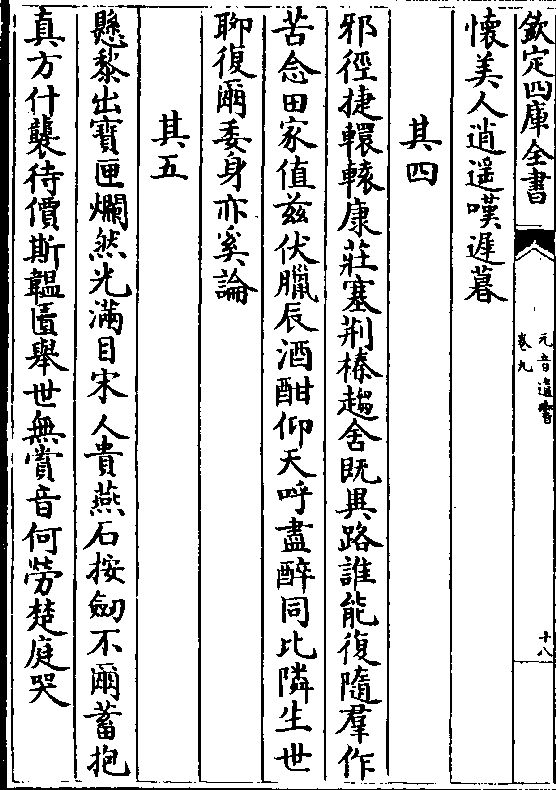 欽定四庫全書
元音遺響
卷九
十八
懷美人逍遥嘆遲暮
其四
邪徑捷轘轅康莊塞荆榛趨舍既異路誰能復隨羣作
苦念田家值兹伏臘辰酒酣仰天呼盡醉同比隣生世
聊復爾委身亦奚論
其五
懸黎出寶匣爛然光滿目宋人貴燕石按劒不爾蓄抱
真方什襲待價斯韞匱舉世無賞音何勞楚庭哭